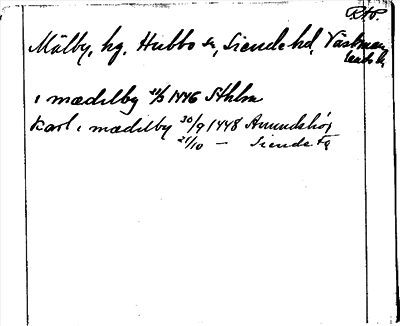 RAp.
Mälby, hg, Hubbo sn, Siende hd, Västman
lands l.
i mædelby 21/3 1446 Sthlm
Karl i mædelby 30/9 1448 Anundshög
21/10 — Siende tg